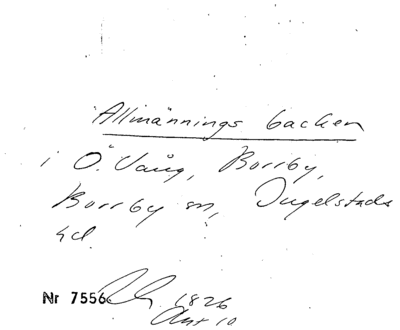 Allmännings backen
i Ö. Vång, Borrby,
Borrby sn, Ingelstads
hd.
Nr 7556
1826
Akt 10